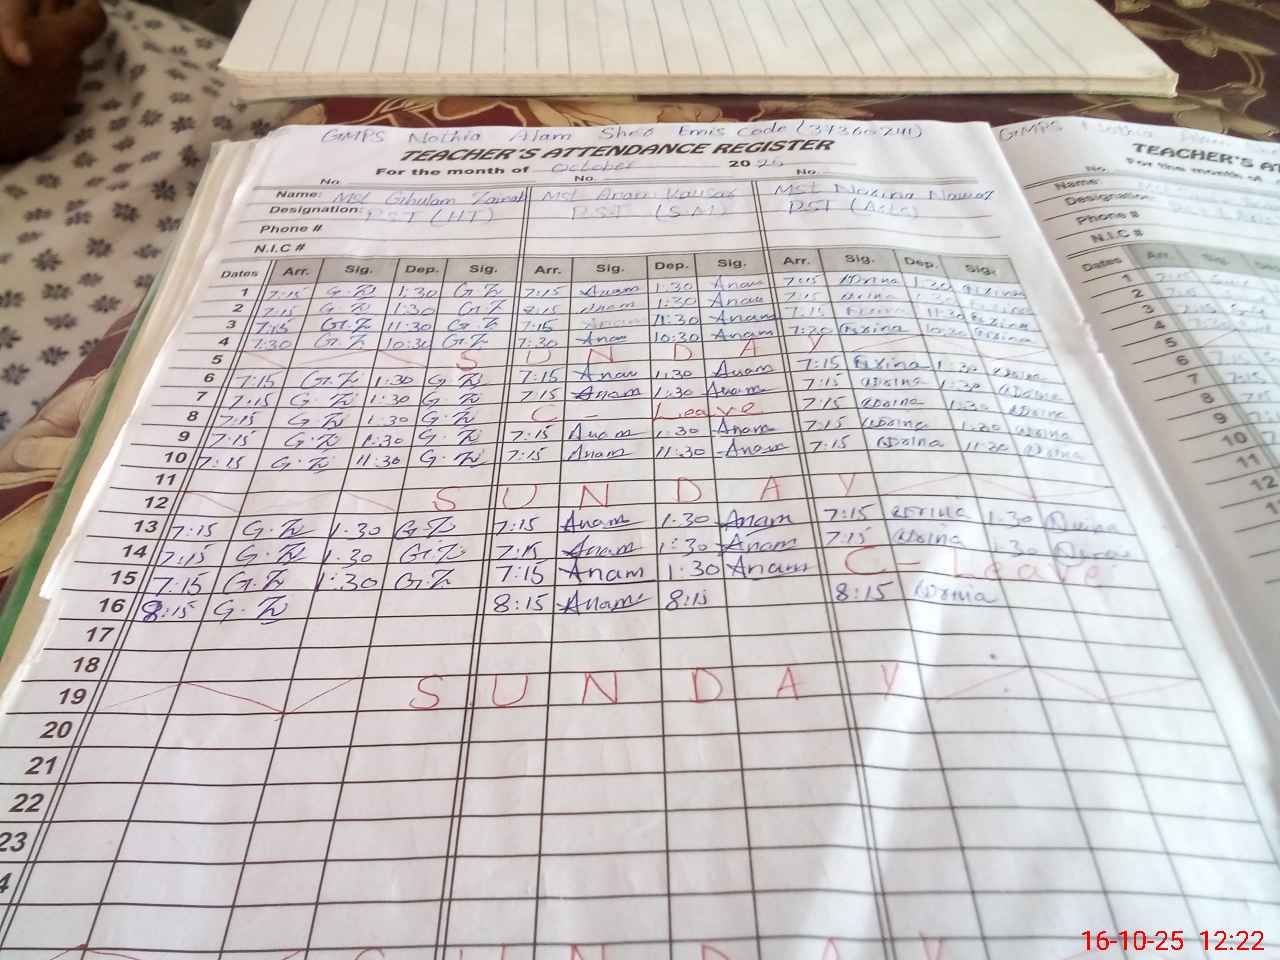 GMPS Nothia Alam Sher Emis Code (37360241)
TEACHER'S ATTENDANCE REGISTER
For the month of October 2025
No. No. No.
Name: Mst Ghulam Zainab Mst Anam Kausar Mst Norina Nawaz
Designation: PST (HT) PST (SM) PST
Phone #
N.I.C #
Dates Arr. Sig. Dep. Sig. Arr. Sig. Dep. Sig. Arr. Sig. Dep. Sig.
1 7:15 G.Z 1:30 G.Z 7:15 Anam 1:30 Anam 7:15 Norina 1:30 Norina
2 7:15 G.Z 1:30 G.Z 7:15 Anam 1:30 Anam 7:15 Norina 1:30
3 7:15 G.Z 11:30 G.Z 7:15 Anam 11:30 Anam 7:15 Norina 11:30 Norina
4 7:30 G.Z 10:30 G.Z 7:30 Anam 10:30 Anam 7:30 Norina 10:30 Norina
5 S U N D A Y
6 7:15 G.Z 1:30 G.Z 7:15 Anam 1:30 Anam 7:15 Norina 1:30 Norina
7 7:15 G.Z 1:30 G.Z 7:15 Anam 1:30 Anam 7:15 Norina 1:30 Norina
8 7:15 G.Z 1:30 G.Z C - Leave 7:15 Norina 1:30 Norina
9 7:15 G.Z 1:30 G.Z 7:15 Anam 1:30 Anam 7:15 Norina 1:30 Norina
10 7:15 G.Z 11:30 G.Z 7:15 Anam 11:30 Anam 7:15 Norina 11:30 Norina
11
12 S U N D A Y
13 7:15 G.Z 1:30 G.Z 7:15 Anam 1:30 Anam 7:15 Norina 1:30 Norina
14 7:15 G.Z 1:30 G.Z 7:15 Anam 1:30 Anam 7:15 Norina 1:30 Norina
15 7:15 G.Z 1:30 G.Z 7:15 Anam 1:30 Anam C - Leave
16 8:15 G.Z 8:15 Anam 8:15 8:15 Norina
17
18
19 S U N D A Y
20
21
22
23
4
S U N D A Y
GMPS Nothia Alam
TEACHER'S A
For the month of
No.
Name:
Designation:
Phone #
N.I.C #
Dates Arr. Sig.
1 7:15
2
3
4
5
6 7:15
7
8
9
10
11
12
16-10-25 12:22